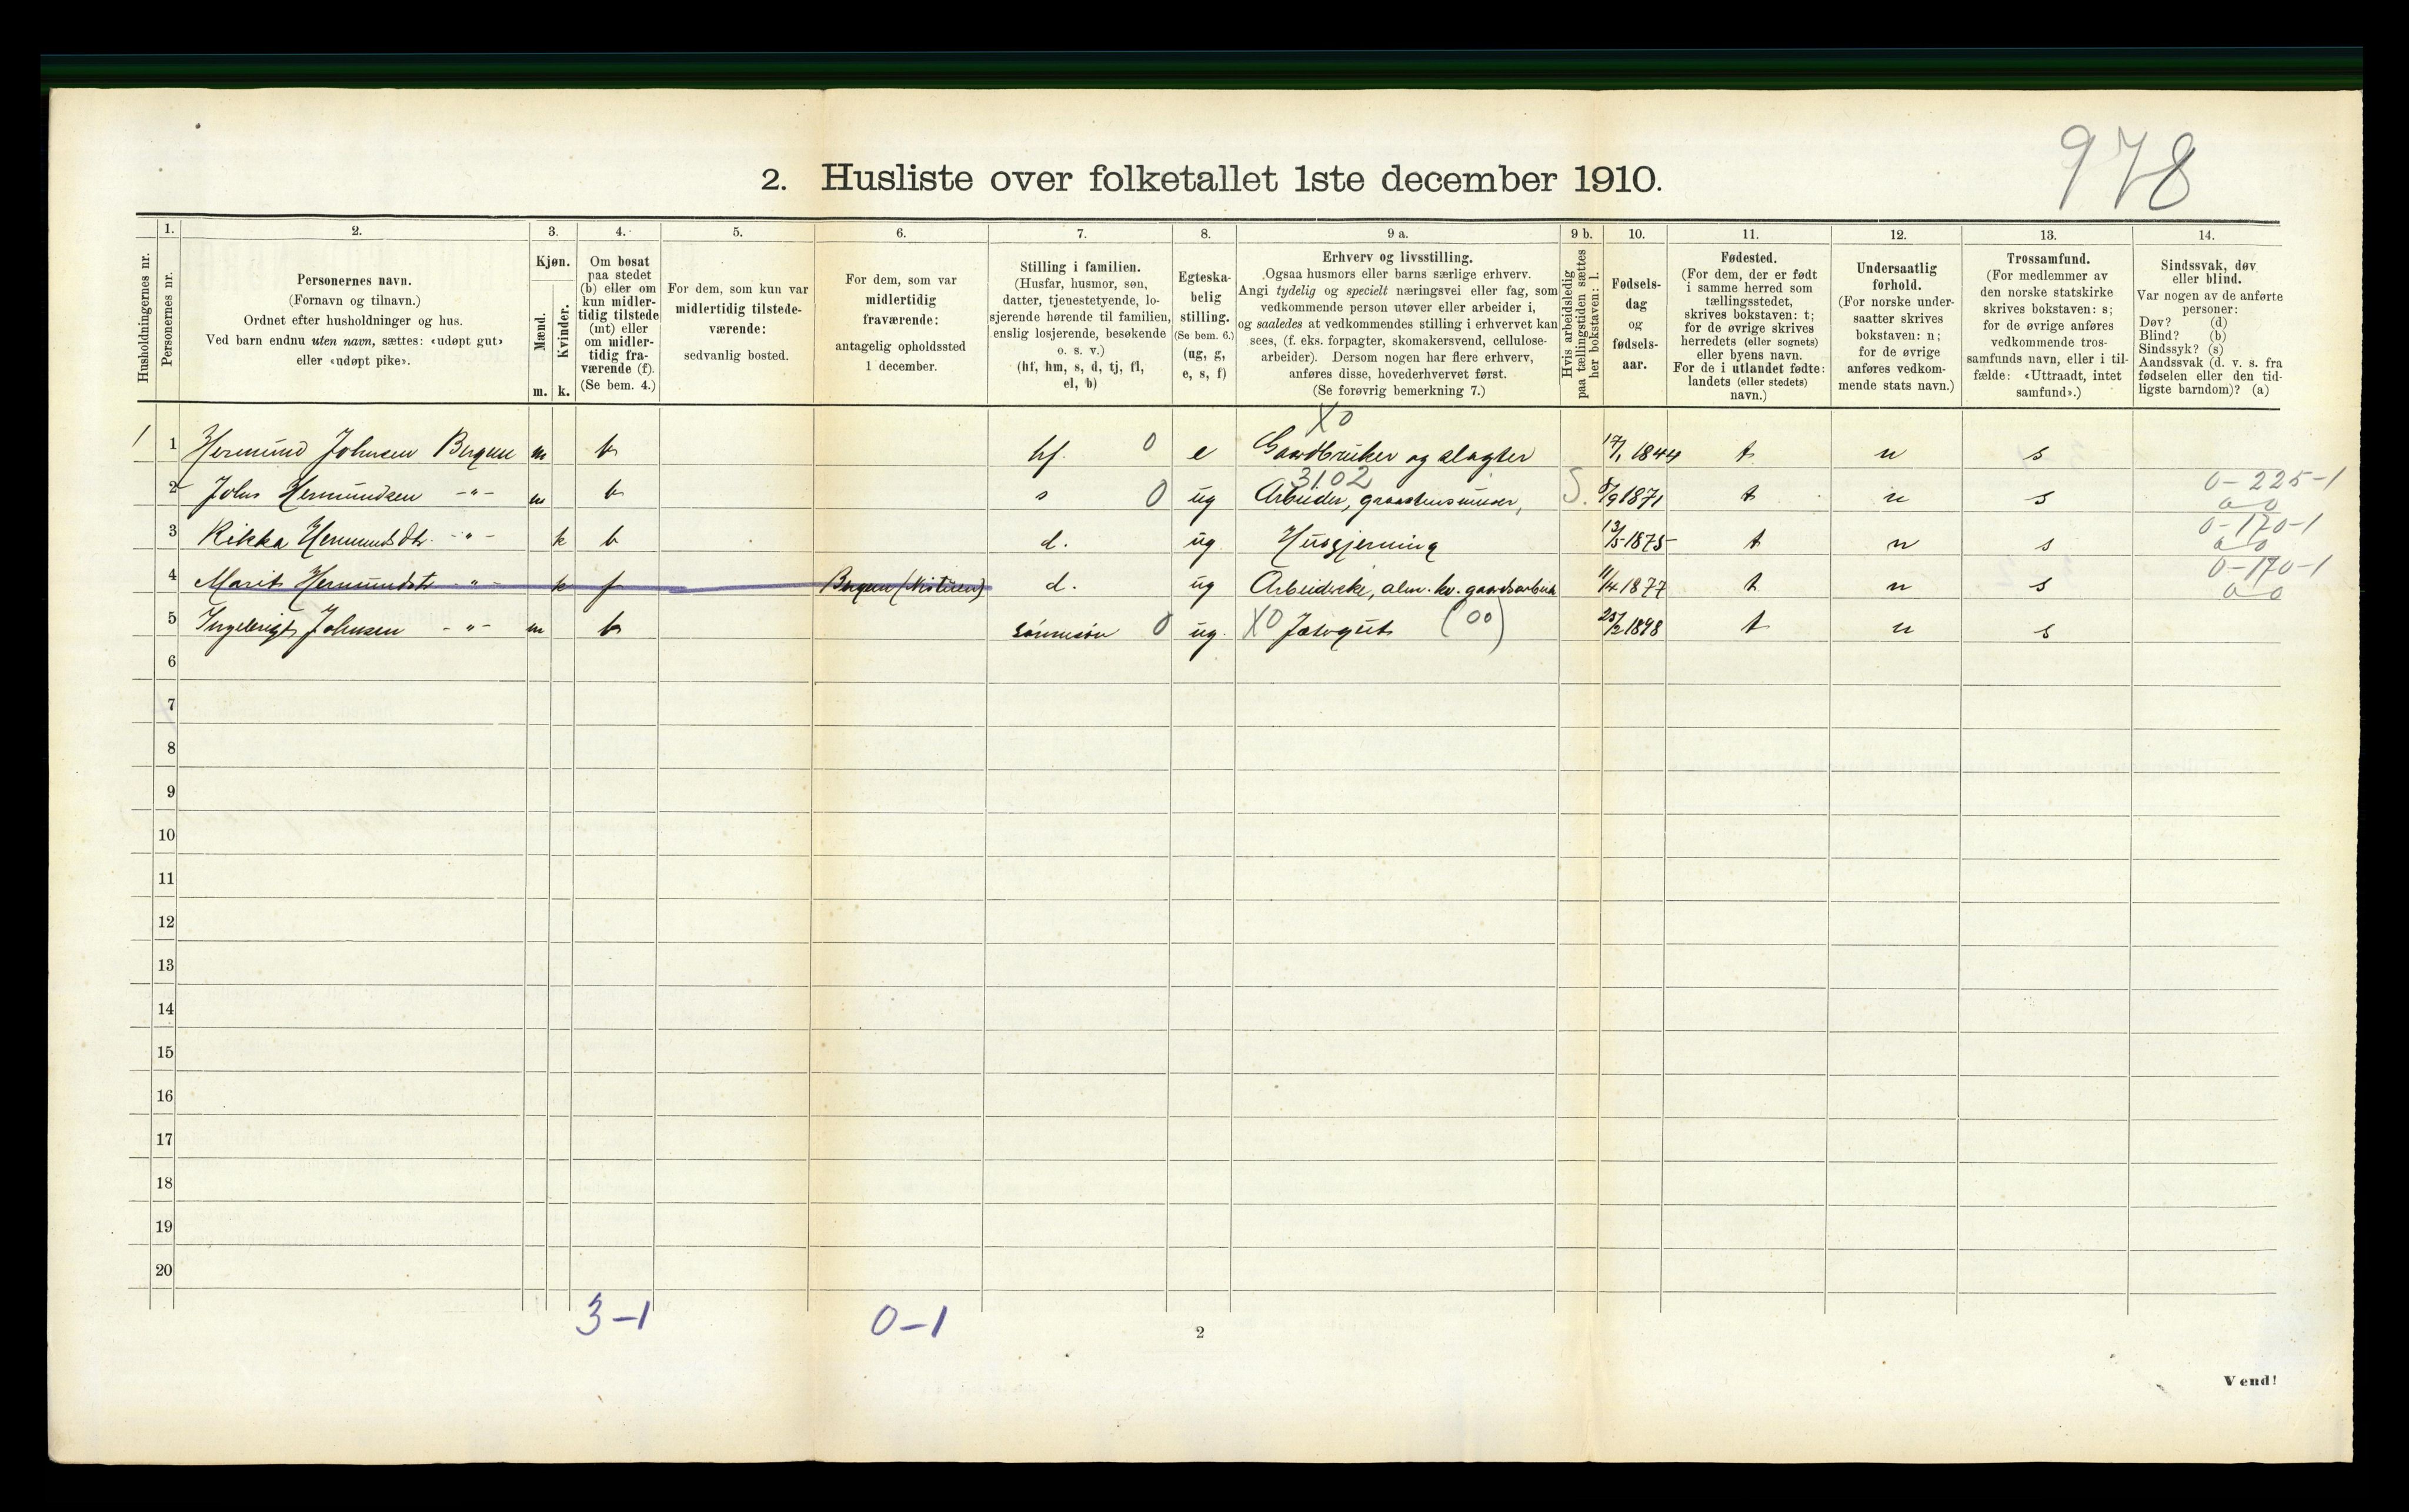 978
2. Husliste over folketallet 1ste december 1910.
Husholdningernes nr.
1.
Personernes nr.
2.
Personernes navn.
(Fornavn og tilnavn.)
Ordnet efter husholdninger og hus.
Ved barn endnu uten navn, sættes: «udøpt gut»
eller «udøpt pike».
3.
Kjøn.
Mænd.
Kvinder.
m. k.
4.
Om bosat
paa stedet
(b) eller om
kun midler-
tidig tilstede
(mt) eller
om midler-
tidig fra-
værende (f).
(Se bem. 4.)
5.
For dem, som kun var
midlertidig tilstede-
værende:
sedvanlig bosted.
6.
For dem, som var
midlertidig
fraværende:
antagelig opholdssted
1 december.
7.
Stilling i familien.
(Husfar, husmor, søn,
datter, tjenestetyende, lo-
sjerende hørende til familien,
enslig losjerende, besøkende
o. s. v.)
(hf, hm, s, d, tj, fl,
el, b)
8.
Egteska-
belig
stilling.
(Se bem. 6.)
(ug, g,
e, s, f)
9 a.
Erhverv og livsstilling.
Ogsaa husmors eller barns særlige erhverv.
Angi tydelig og specielt næringsvei eller fag, som
vedkommende person utøver eller arbeider i,
og saaledes at vedkommendes stilling i erhvervet kan
sees, (f. eks. forpagter, skomakersvend, cellulose-
arbeider). Dersom nogen har flere erhverv,
anføres disse, hovederhvervet først.
(Se forøvrig bemerkning 7.)
9 b.
Hvis arbeidsledig
paa tællingstiden sættes
her bokstaven: l.
10.
Fødsels-
dag
og
fødsels-
aar.
11.
Fødested.
(For dem, der er født
i samme herred som
tællingsstedet,
skrives bokstaven: t;
for de øvrige skrives
herredets (eller sognets)
eller byens navn.
For de i utlandet fødte:
landets (eller stedets)
navn.)
12.
Undersaatlig
forhold.
(For norske under-
saatter skrives
bokstaven: n;
for de øvrige
anføres vedkom-
mende stats navn.)
13.
Trossamfund.
(For medlemmer av
den norske statskirke
skrives bokstaven: s;
for de øvrige anføres
vedkommende tros-
samfunds navn, eller i til-
fælde: «Uttraadt, intet
samfund».)
14.
Sindssvak, døv
eller blind.
Var nogen av de anførte
personer:
Døv? (d)
Blind? (b)
Sindssyk? (s)
Aandssvak (d. v. s. fra
fødselen eller den tid-
ligste barndom)? (a)
X0
1 1 Hermund Johnsen Bergum m b hf. 0 e Gaardbruker og slagter 17/1 1844 t n s
3102 0-225-1
2 John Hermundsen -"- m b s 0 ug Arbeider, graastensmurer, S. 8/9 1871 t n s a 0
0-170-1
3 Rikka Hermundsdtr. -"- k b d. ug Husgjerning 13/5-1875 t n s a 0
0-170-1
4 Marit Hermundsdtr -"- k f d. ug Arbeiderske, alm. kv. gaardsarbeide 11/4 1877 t n s a 0
5 Ingebrigt Johnsen -"- m b sønnesøn 0 ug. X0 Jætergut (00) 25/2 1898 t n s
6
7
8
9
10
11
12
13
14
15
16
17
18
19
20
3-1 0-1
2
Vend!